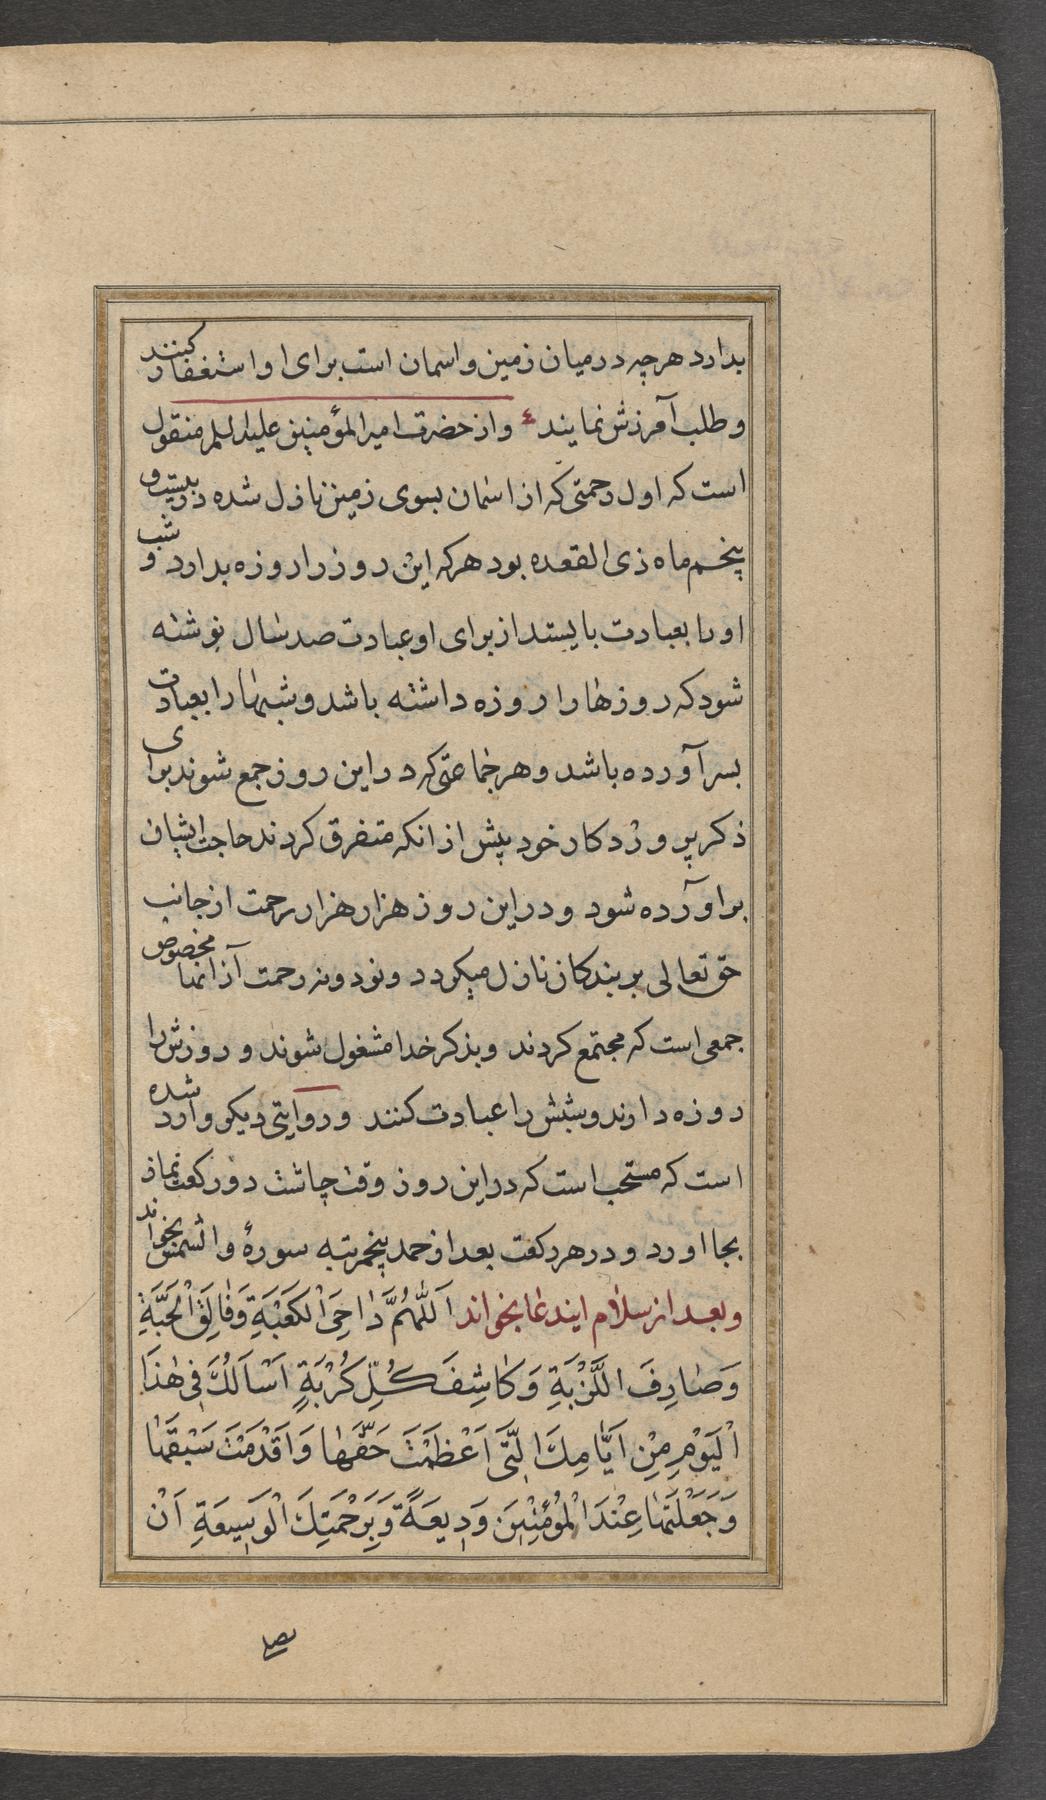 بدارد هرچه در میان زمین و اسمان است برای او استغفار کنند
و طلب آمرزش نمایند ٤ و از حضرت امیر المؤمنین علیه السلم منقول
است که اول رحمتی که از اسمان بسوی زمین نازل شده در بیست و
پنجم ماه ذی القعده بود هرکه این روز را روزه بدارد و شب
او را بعبادت بایستد از برای او عبادت صد سال نوشته
شود که روزها را روزه داشته باشد و شبها را بعبادت
بسر آورده باشد و هر جماعتی که در این روز جمع شوند برای
ذکر پروردکار خود پیش از انکه متفرق کردند حاجت ایشان
براورده شود و در این روز هزار هزار رحمت از جانب
حق تعالی بر بندکان نازل میکردد و نود و نه رحمت از انها مخصوص
جمعی است که مجتمع کردند و بذکر خدا مشغول شوند و روزش را
روزه دارند و شبش را عبادت کنند و روایتی دیکر وارد شده
است که مستحب است که در این روز وقت چاشت دو رکعت نماز
بجا اورد و در هر رکعت بعد از حمد پنجمرتبه سورهٔ والشمس بخواند
و بعد از سلام ایندعا بخواند اَللّٰهُمَّ دَاحِیَ الْکَعْبَةِ وَفَالِقَ الْحَبَّةِ
وَصَارِفَ اللَّزْبَةِ وَکَاشِفَ کُلِّ کُرْبَةٍ اَسْاَلُکَ فِی هٰذَا
الْیَوْمِ مِنْ اَیَّامِکَ الَّتِی اَعْظَمْتَ حَقَّهَا وَاَقْدَمْتَ سَبْقَهَا
وَجَعَلْتَهَا عِنْدَ الْمُؤْمِنِینَ وَدِیعَةً وَبِرَحْمَتِکَ الْوَسِیعَةِ اَنْ